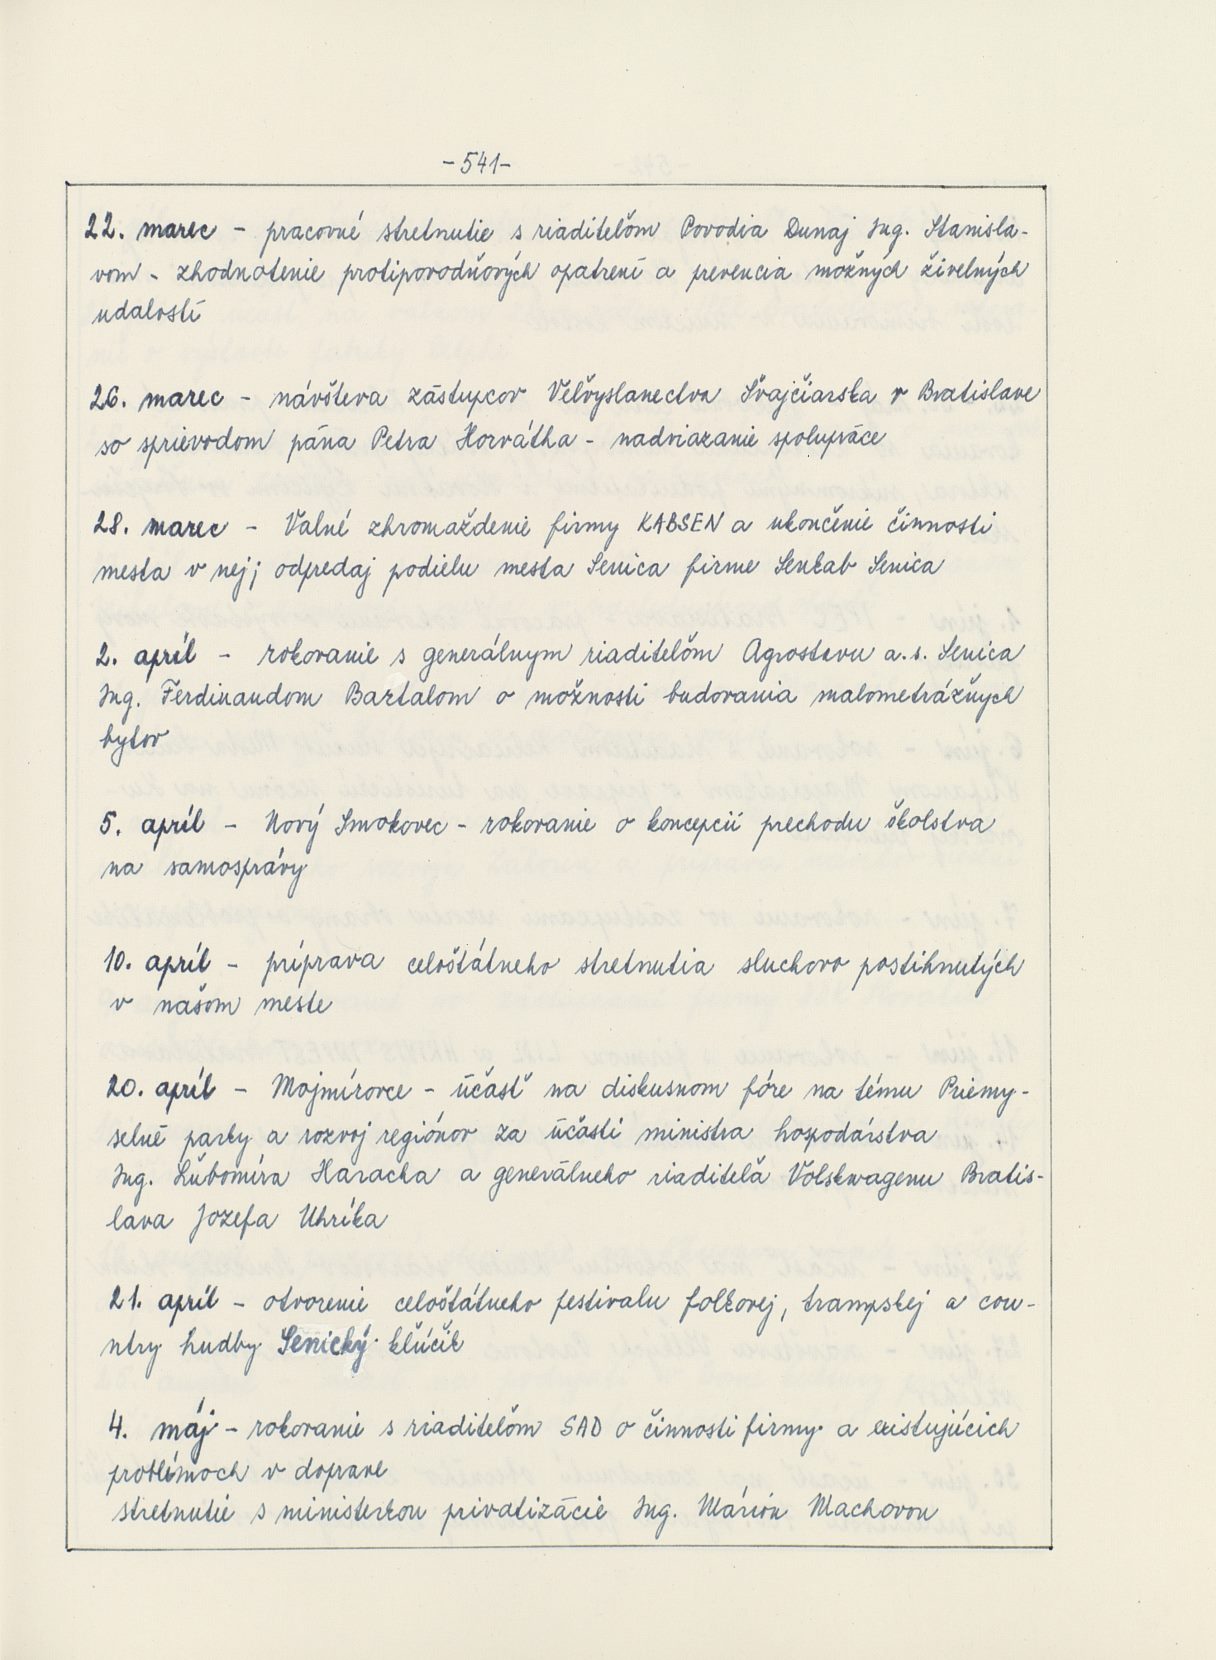 -541-
22. marec - pracovné stretnutie s riaditeľom Povodia Dunaj Ing. Stanisla-
vom - zhodnotenie protipovodňových opatrení a prevencia možných živelných
udalostí
26. marec - návšteva zástupcov Veľvyslanectva Švajčiarska v Bratislave
so sprievodom pána Petra Horvátha - nadviazanie spolupráce
28. marec - Valné zhromaždenie firmy KABSEN a ukončenie činnosti
mesta v nej; odpredaj podielu mesta Senica firme Senkab Senica
2. apríl - rokovanie s generálnym riaditeľom Agrostavu a.s. Senica
Ing. Ferdinandom Bartalom o možnosti budovania malometrážnych
bytov
5. apríl - Nový Smokovec - rokovanie o koncepcii prechodu školstva
na samosprávy
10. apríl - príprava celoštátneho stretnutia sluchovo postihnutých
v našom meste
20. apríl - Mojmírovce - účasť na diskusnom fóre na tému Priemy-
selné parky a rozvoj regiónov za účasti ministra hospodárstva
Ing. Ľubomíra Haracha a generálneho riaditeľa Volskwagenu Bratis-
lava Jozefa Uhríka
21. apríl - otvorenie celoštátneho festivalu folkovej, trampskej a cou-
ntry hudby Senický kľúčik
4. máj - rokovanie s riaditeľom SAD o činnosti firmy a existujúcich
problémoch v doprave
stretnutie s ministerkou privatizácie Ing. Máriou Machovou